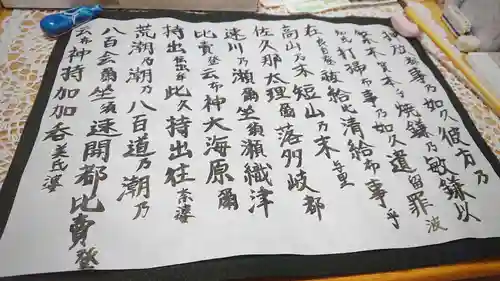 放事乃如久彼方乃
繁木賀本乎焼鎌乃敏鎌以
氐打掃布事乃如久遺留罪波
在良自止祓給比清給布事乎
高山乃末短山乃末与里
佐久那太理爾落多岐都
速川乃瀬爾坐須瀬織津
比売登云布神大海原爾
持出伝奈牟此久持出往奈婆
荒潮乃潮乃八百道乃潮乃
八百会爾坐須速開都比売登
云布神持加加呑美氐婆